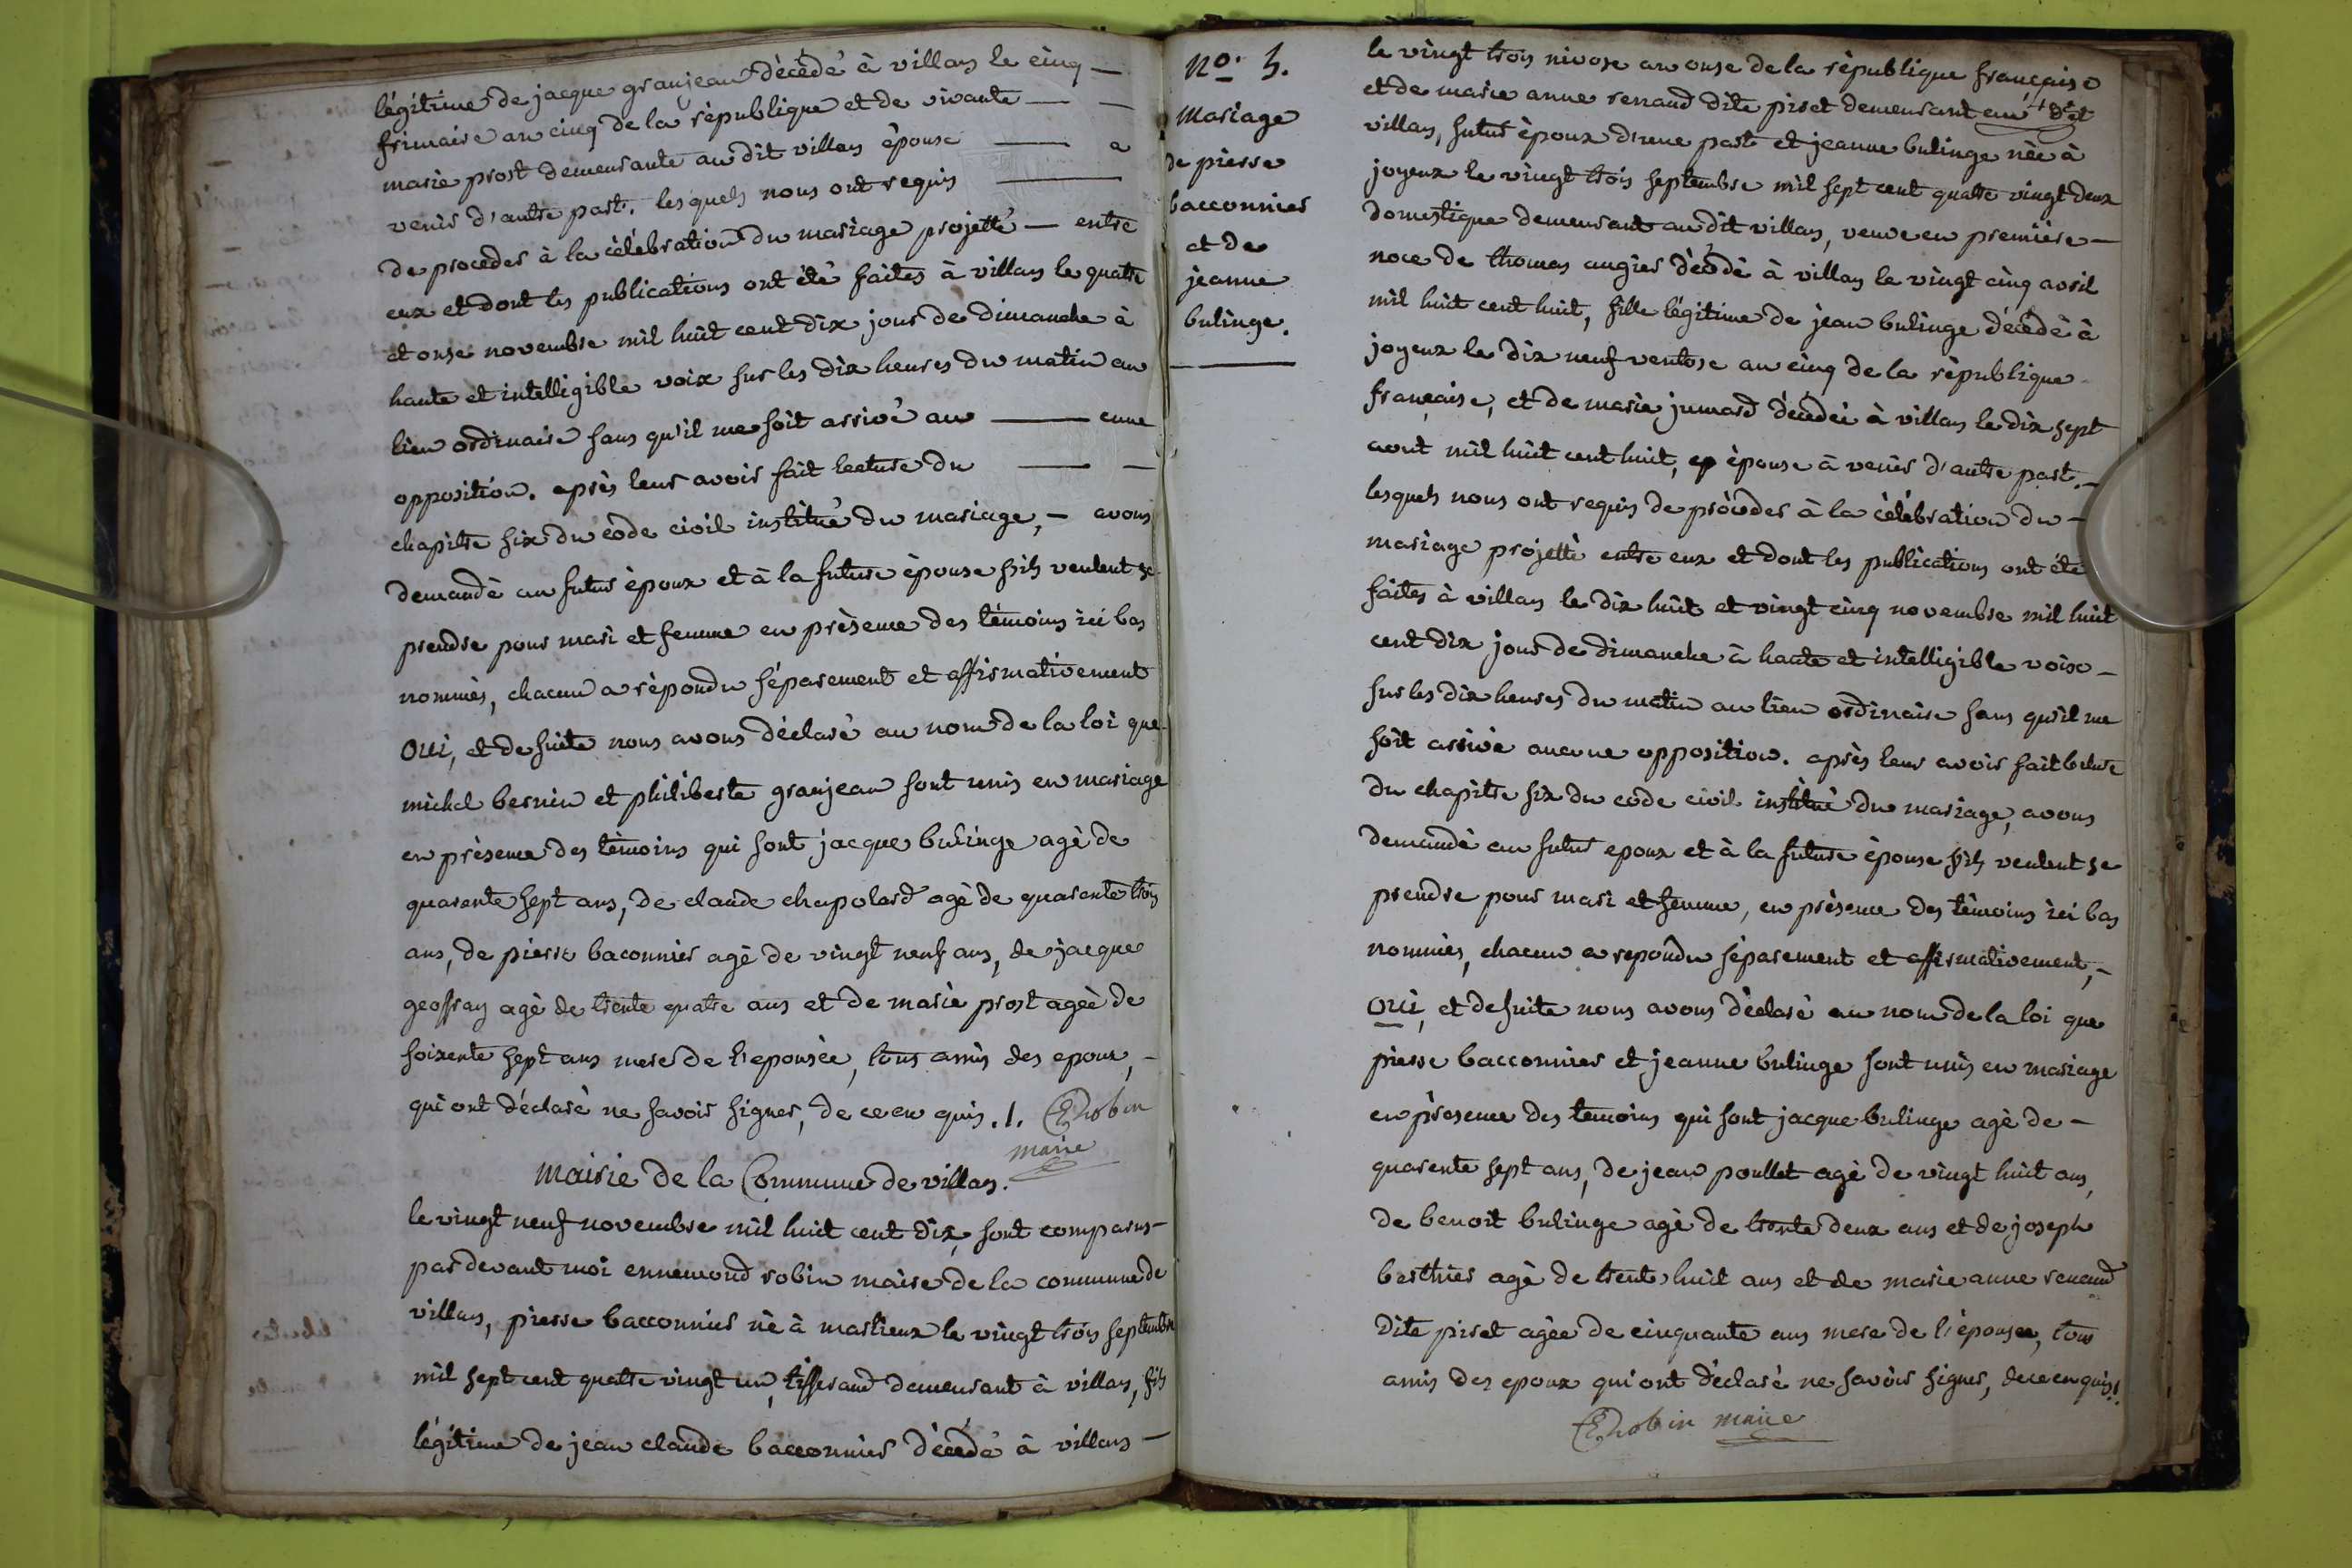 légitime de jacque granjean décédé à villars le cinq —
frimaire an cinq de la république et de vivante — —
marie prost demeurante au dit villars épouse — a
venir d'autre part. lesquels nous ont requis —
de proceder à la célébration du mariage projetté — entre
eux et dont les publications ont été faites à villars le quatre
et onze novembre mil huit cent dix jour de dimanche à
haute et intelligible voix sur les dix heures du matin au
lieu ordinaire sans qu'il me soit arrivé au — cune
opposition. après leur avoir fait lecture du — —
chapitre six du code civil institué du mariage, — avons
demandé au futur époux et à la future épouse s'ils veulent se
prendre pour mari et femme en présence des témoins ici bas
nommés, chacun a répondu séparement et affirmativement
OUI, et de suite nous avons déclaré au nom de la loi que
michel bernin et philiberte granjean sont unis en mariage
en présence des témoins qui sont jacque bulinge agé de
quarente sept ans, de claude chapolard agé de quarente trois
ans, de pierre baconnier agé de vingt neuf ans, de jacque
geoffray agé de trente quatre ans et de marie prost ageé de
soixente sept ans mere de l'epousée, tous amis des epoux, –
qui ont déclaré ne savoir signer, de ce en quis ./. ERobin
maire
Mairie de la Commune de villars.
le vingt neuf novembre mil huit cent dix, sont comparus –
par devant moi ennemond robin maire de la commune de
villars, pierre bacconnier né à marlieux le vingt trois septembre
mil sept cent quatre vingt un, tisserand demeurant à villars, fils
légitime de jean claude bacconnier décédé à villars —
No. 5.
Mariage
de pierre
bacconnier
et de
jeanne
bulinge.
le vingt trois nivose an onze de la république française
et de marie anne renaud dite piret demeurant au + dit
villars, futur époux d'une part et jeanne bulinge née à
joyeux le vingt trois septembre mil sept cent quatre vingt deux
domestique demeurant au dit villars, veuve en première –
noce de thomas augier décédé à villars le vingt cinq avril
mil huit cent huit, fille légitime de jean bulinge décédé à
joyeux le dix neuf ventose an cinq de la république
française, et de marie jumard décédée à villars le dix sept
aout mil huit cent huit, ep épouse à venir d'autre part. –
lesquels nous ont requis de procéder à la célébration du –
mariage projetté entre eux et dont les publications ont été
faites à villars le dix huit et vingt cinq novembre mil huit
cent dix jour de dimanche à haute et intelligible voix –
sur les dix heures du matin au lieu ordinaire sans qu'il me
soit arrivé aucune opposition. après leur avoir fait lecture
du chapitre six du code civil institué du mariage, avons
demandé au futur epoux et à la future épouse s'ils veulent se
prendre pour mari et femme, en présence des témoins ici bas
nommés, chacun a repondu séparement et affirmativement, –
OUI, et de suite nous avons déclaré au nom de la loi que
pierre bacconnier et jeanne bulinge sont unis en mariage
en présence des temoins qui sont jacque bulinge agé de –
quarente sept ans, de jean poullet agé de vingt huit ans,
de benoit bulinge agé de trente deux ans et de joseph
berthier agé de trente huit ans et de marie anne renaud
dite piret agée de cinquante ans mere de l'épousee, tous
amis des epoux qui ont déclaré ne savoir signer, de ce en quis ./.
ERobin maire